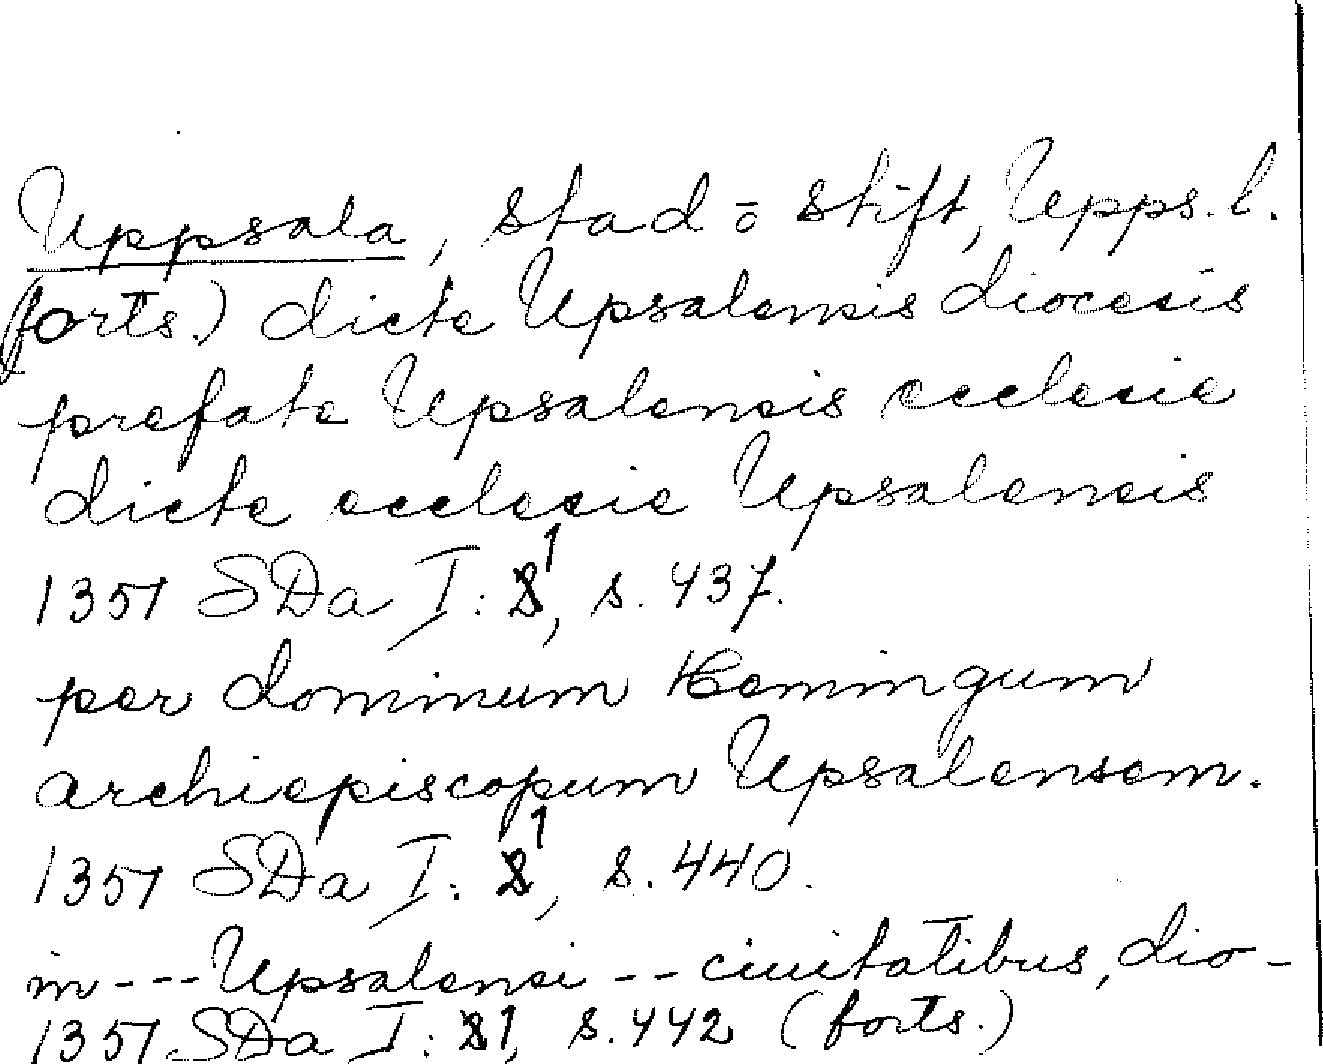 Uppsala, stad o stift, Upps. l.
(forts.) dicte Upsalensis diocesis
prefate Upsalensis ecclesie
dicte ecclesie Upsalensis
1351 SDa I: 1, s. 437.
per dominum Hemingum
archiepiscopum Upsalensem.
1351 SDa I: 1, s. 440.
in --- Upsalensi -- ciuitatibus, dio-
1351 SDa I: 1, s. 442 (forts.)